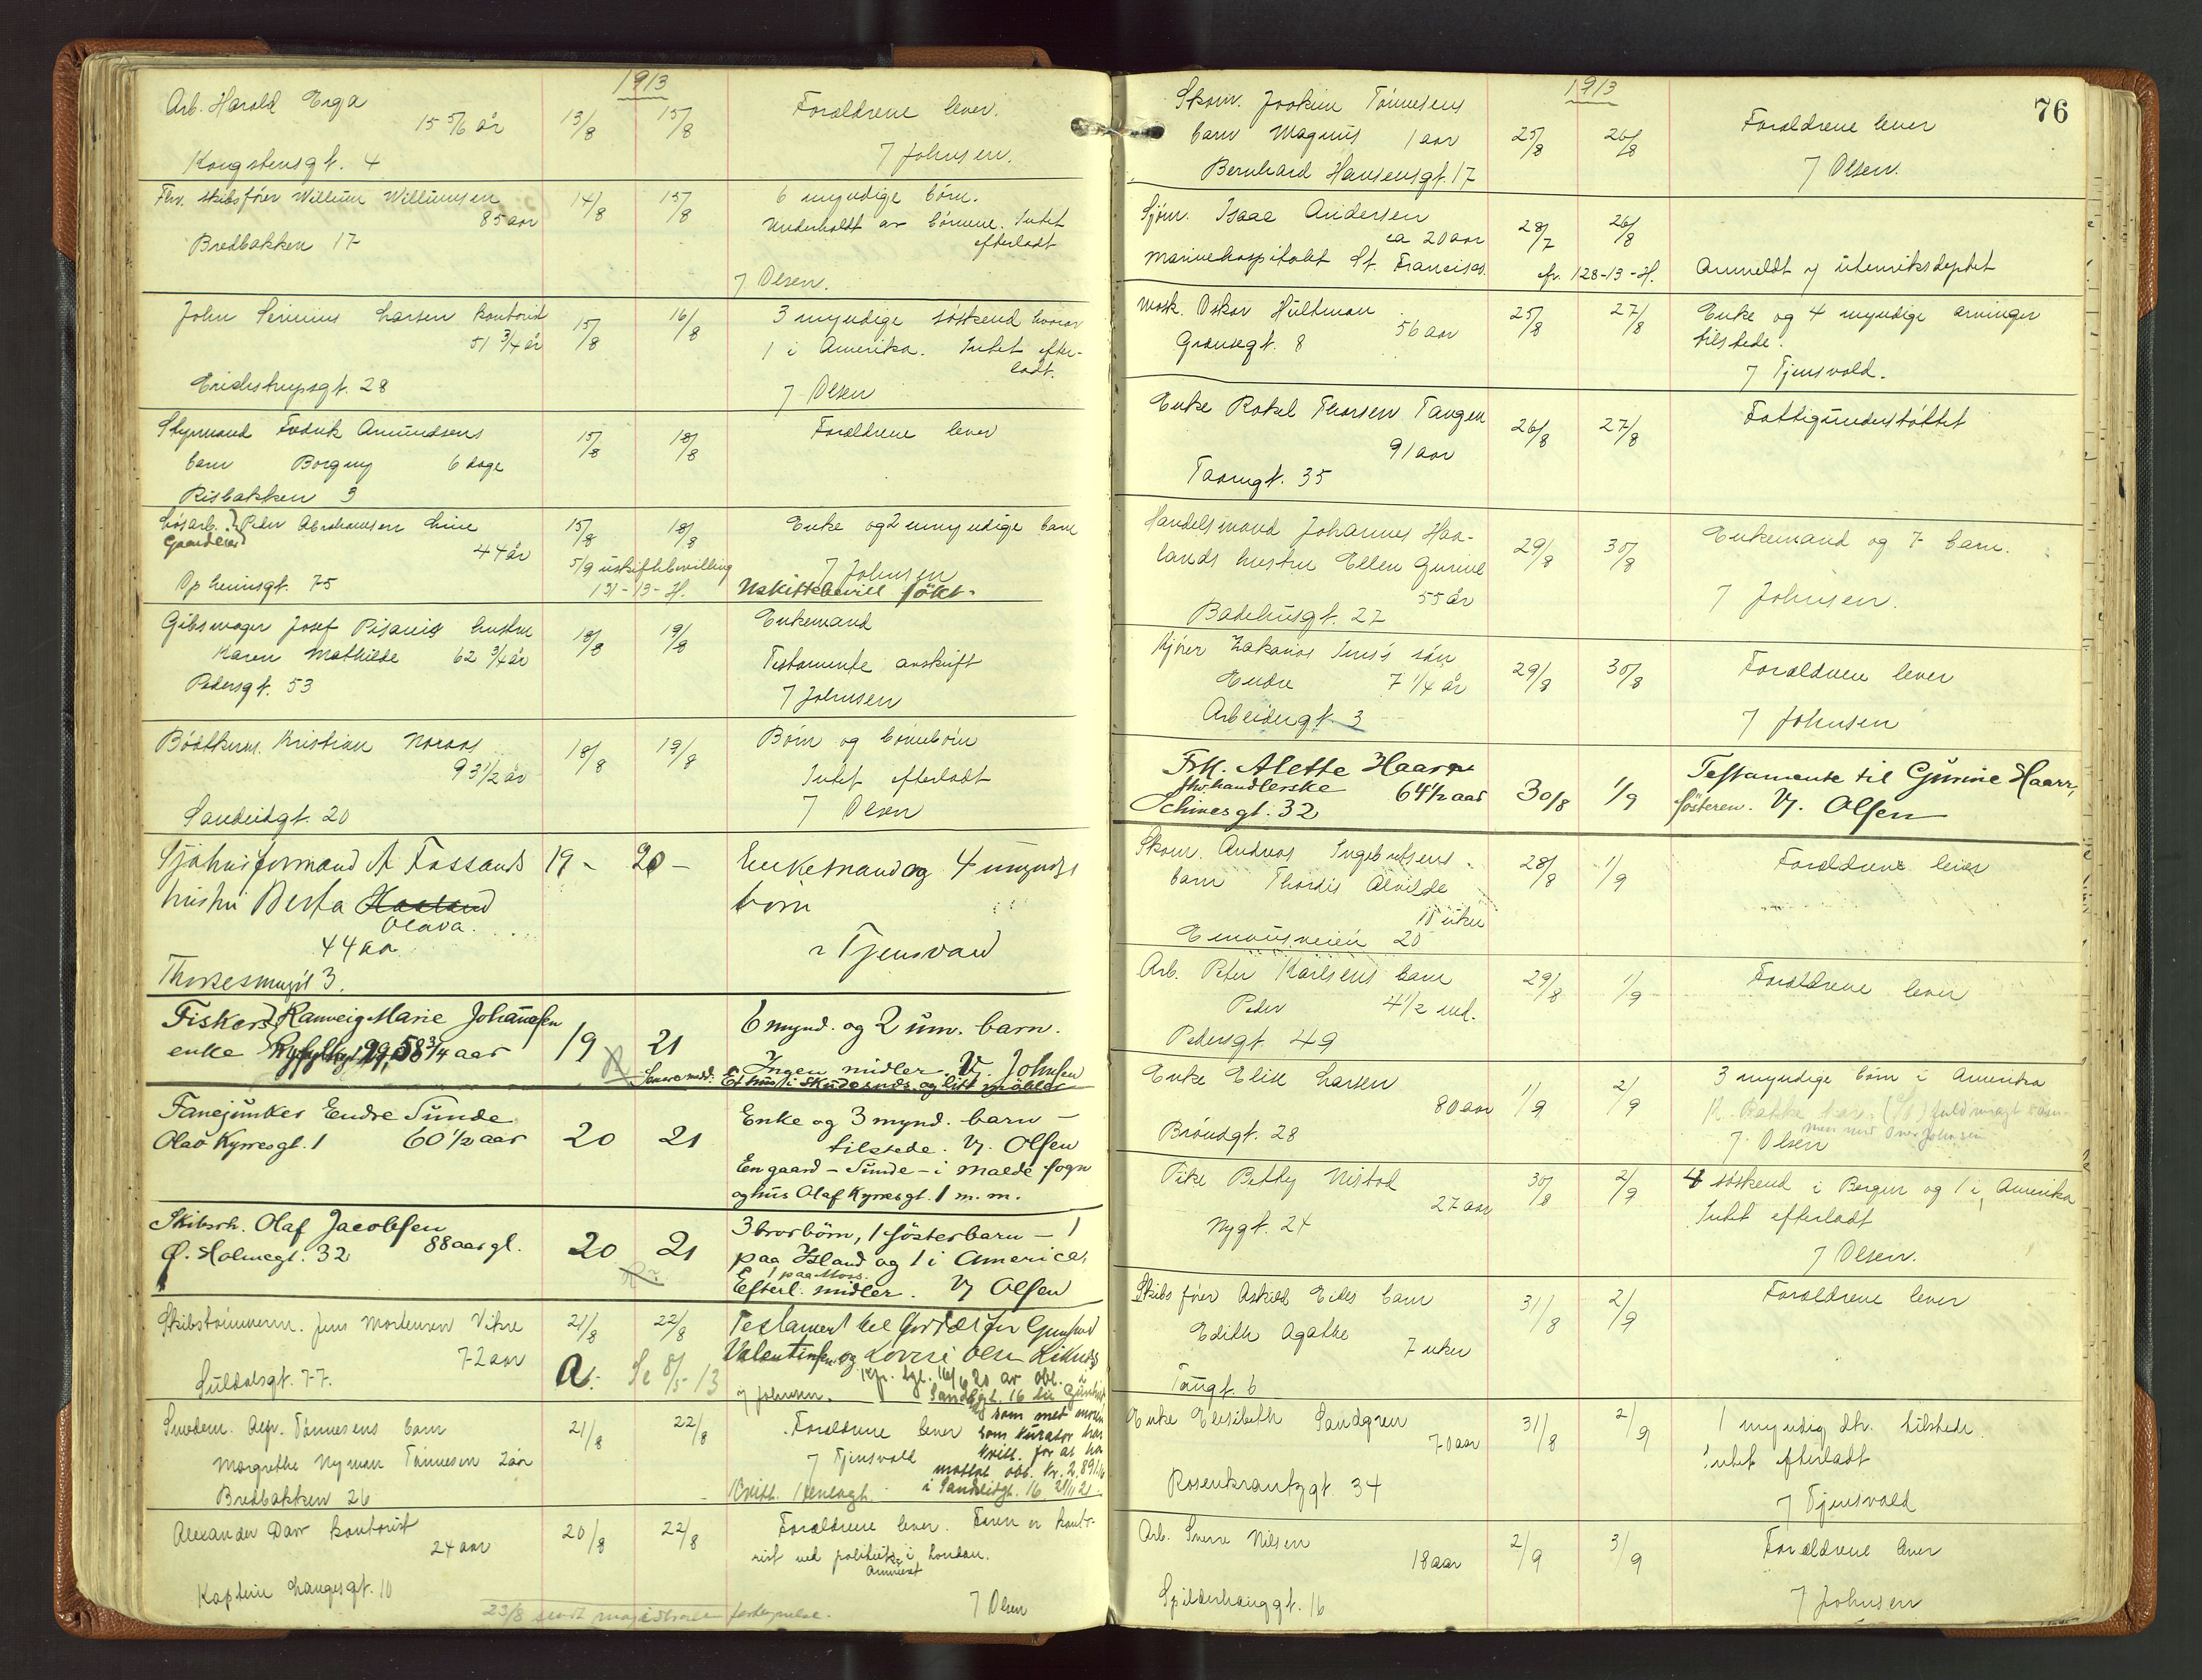 1913
Arb. Harold Erga
15 5/6 år
13/8 15/8
Forældrene lever.
Kongstensgt. 4
7 Johnsen.
Fhv. skibsfører Willum Willumsen
85 aar
14/8 15/8
6 myndige børn.
Underholdt av børnene. Intet
efterladt
Bredbakken 17
7 Olsen.
John Serinius Larsen kontorist
51 3/4 år
15/8 16/8
3 myndige søskend hvorav
1 i Amerika. Intet efter-
ladt.
Erichstrupsgt. 28
7 Olsen
Styrmand Fredrik Amundsens
barn Borgny 6 dage
15/8 18/8
Forældrene lever
Risbakken 3
Løsarb. Peder Abrahamsen Line
44 år
15/8 18/8
Enke og 2 umyndige barn
5/9 uskiftebevilling
7 Johnsen
Opheimsgt. 75
131-13-H.
Uskiftebevill søkt.
Gibsmager Josef Pisanis hustru
Karen Mathilde 62 3/4 år
18/8 19/8
Enkemand
Testamente avskrift
Pedersgt. 53
7 Johnsen
Bødtkerm. Kristian Noraas
93 1/2 år
18/8 19/8
Børn og børnebørn
Intet efterladt
Sandeidgt. 20
7 Olsen
Sjøhusformand A Fossands
19 - 20 -
Enkemand og 4 umynd
hustru Berta Haaland
børn
Olava.
44 aar
7 Tjensvold
3.
Fiskers Ranveig Marie Johannesen
enke 58 3/4 aar
19 21
6 mynd. og 2 um. barn.
Ingen midler. Vj. Johnsen
Et hus i Skudesnds. og litt møbler
Fanejunker Endre Sunde
Olav Kyrresgt. 1 60 1/2 aar
20 21
Enke og 3 mynd. barn -
tilstede. Vj. Olsen
En gaard - Sunde - i Malde sogn
og hus Olaf Kyrresgt. 1 m. m.
Skibsrh. Olaf Jacobsen
Ø. Holmegt. 32 88 aar gl.
20 21
3 brorbørn, 1 søsterbarn - 1
paa Island og 1 i America,
1 paa Moss.
Efterl. midler. Vj Olsen
Skibstømmerm. Jens Mortensen Vikre
72 aar
21/8 22/8
Testament
Valentinsen og Olsen
Suldalsgt. 77.
7 Johnsen.
Snedem. Alfr. Tønnesens barn
Margrethe Nyman Tønnesen 2 år
21/8 22/8
Forældrene lever
7 Tjensvold
Bredbakken 26
i Sandeidgt. 16
Alexander Darr kontorist
24 aar
20/8 22/8
Forældrene lever. Faren er konto-
rist ved politiet i London.
Kaptein Langesgt. 10
7 Olsen
76
1913
Skom. Joakim Tønnesens
barn Magnus 1 aar
25/8 26/8
Forældrene lever
Bernhard Hansensgt. 17
7 Olsen.
Sjøm. Isaac Andersen
ca 20 aar
28/7 26/8
Marinehospitalet St. Francisco.
cfr. 128-13-H.
Anmeldt av utenriksdeptet
Mask. Oskar Hultman
56 aar
25/8 27/8
Enke og 4 myndige arvinger
tilstede.
Grænsegt. 8
7 Tjensvold.
Enke Rakel Thorsen Tangen
91 aar
26/8 27/8
Fattigunderstøttet
Taarngt. 35
Handelsmand Johannes Haa-
lands hustru Ellen Gurine
55 år
29/8 30/8
Enkemand og 7 barn.
Badehusgt. 27
7 Johnsen.
Kjører Zakarias Imes's søn
Endre 7 1/4 år
29/8 30/8
Forældrene lever
Arbeidergt. 3
7 Johnsen
Frk. Alette Haarr
fhv. handlerske 64 1/2 aar
30/8 1/9
Testamente til Gurine Haarr,
søsteren. Vj. Olsen
Schivesgt. 32
Skom. Andreas Ingebretsens
barn Thordis Alvilde
28/8 1/9
Forældrene lever
uker
Emausveien 20
Arb. Peter Karlsens barn
Peder 4 1/2 md.
29/8 1/9
Forældrene lever
Pedersgt. 49
Enke Elise Larsen
80 aar
1/9 2/9
3 myndige børn i Amerika
Brøndgt. 28
7 Olsen
Pike Betty Nistad
27 aar
30/8 2/9
4 søskend i Bergen og 1 i Amerika
Intet efterladt
Nygt. 24
7 Olsen.
Skibsfører Askild Eides barn
Edith Agathe
7 uker
31/8 2/9
Forældrene lever
Taugt. 6
Enke Elisabeth Sandgren
70 aar
31/8 2/9
1 myndig dtr. tilstede.
Intet efterladt
Rosenkrantzgt. 34
7 Tjensvold
Arb. Sverre Nilsen
18 aar
2/9 3/9
Forældrene lever
Spilderhauggt. 16
7 Johnsen